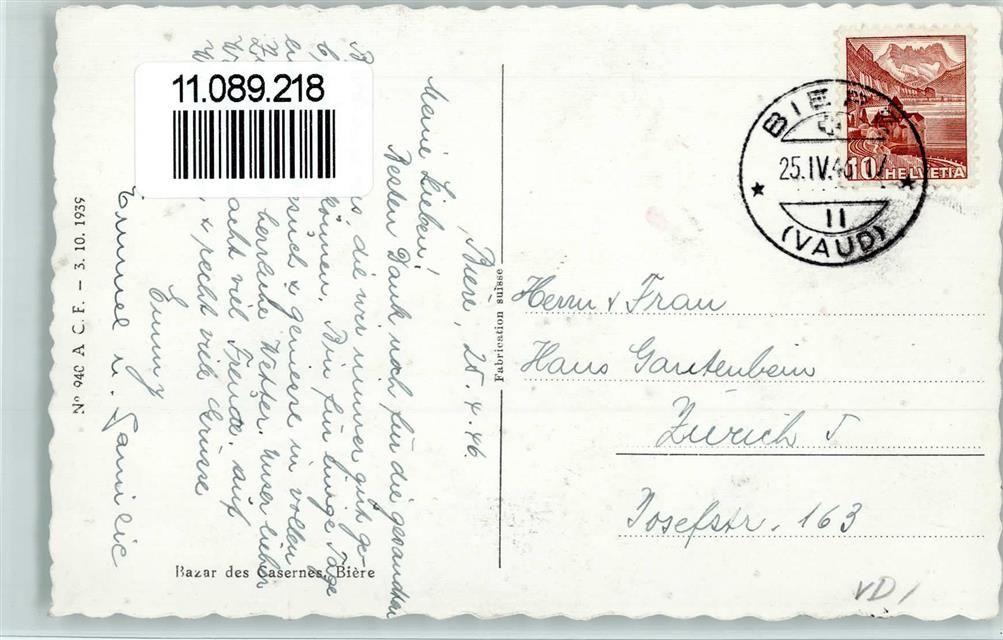 11.089.218
Bière, 25.4.46.
Meine Lieben!
Besten Dank noch für die gesandten
die wir immer gut ge-
können. Bin für einige Tage
& geniesse in vollen
herrliche Wetter. Unser lieber
macht viel Freude. auf
& recht viele Grüsse
Emmy
u. Familie
Nº 940 A. C. F. – 3. 10. 1939
Bazar des Casernes, Bière
Fabrication suisse
BIÈRE
25.IV.46
11
(VAUD)
10 HELVETIA
Herrn & Frau
Hans Gantenbein
Zürich 5
Josefstr. 163
VD /